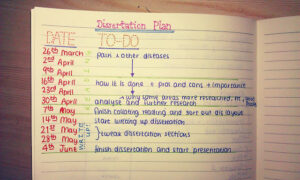 Dissertation Plan
DATE TO-DO
26th March pain + other diseases
2nd April
9th April
16th April how it is done + pros and cons + importance
23rd April why some areas more researched,
30th April analyse and further research
7th May finish collating reading and sort out dis layout
14th May start writing up dissertation
21st May
28th May tweak dissertation sections
4th June finish dissertation and start presentation
WRITE UP!